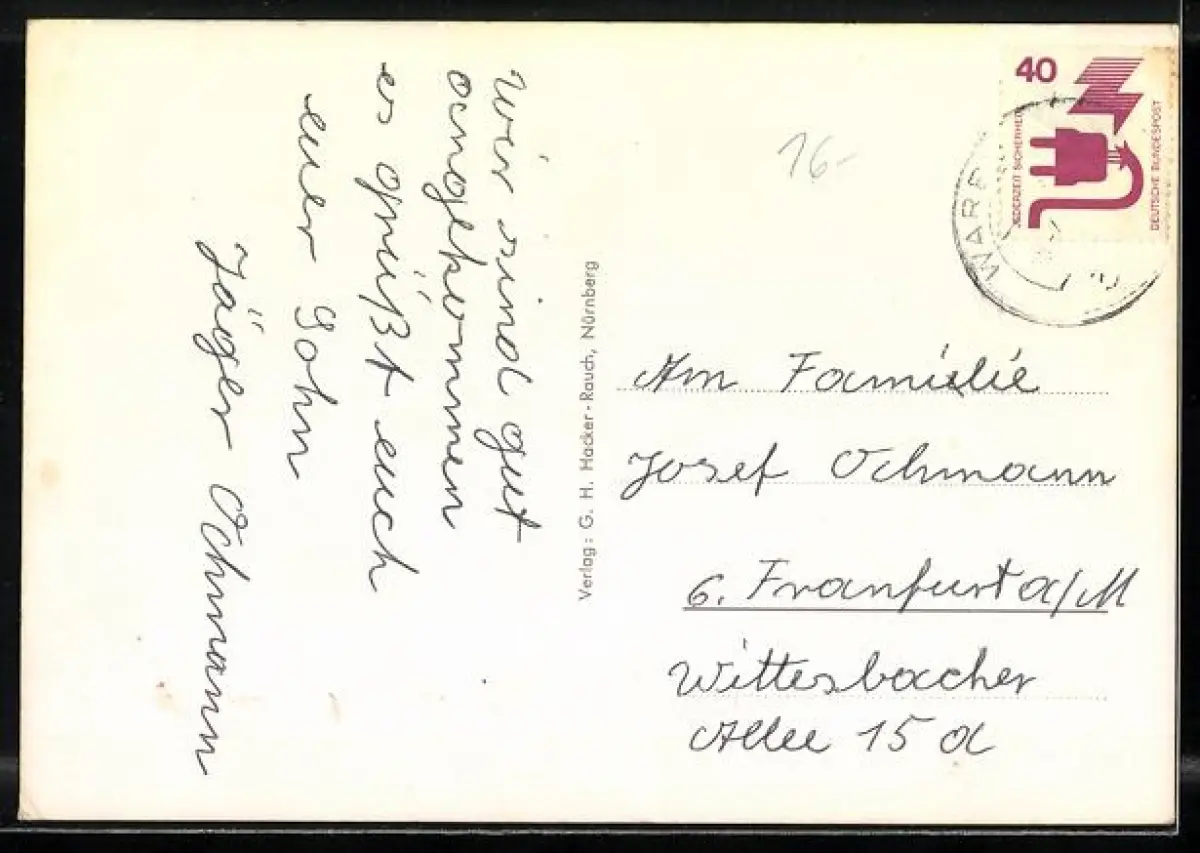 Wir sind gut
angekommen
es grüßt euch
euer Sohn
Jäger Ochmann
Verlag: G. H. Hacker-Rauch, Nürnberg
16-
40
JEDERZEIT SICHERHEIT
DEUTSCHE BUNDESPOST
An Familie
Josef Ochmann
6. Franfurt a/M
Wittesbacher
Allee 15 a